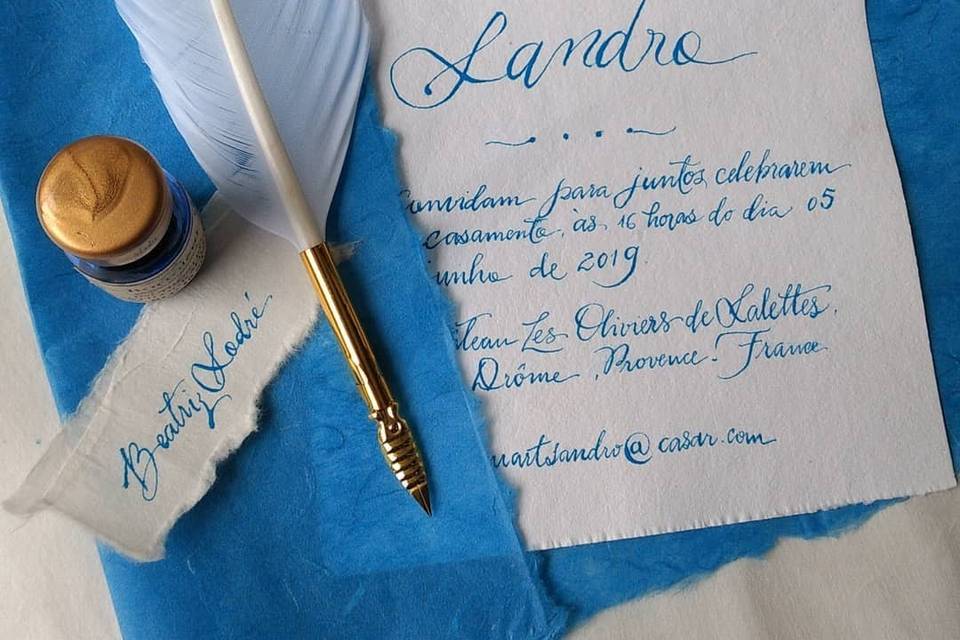 Sandro
Convidam para juntos celebrarem
casamento, às 16 horas do dia 05
junho de 2019.
Les Oliviers de Salettes,
Drôme, Provence - France
martsandro@casar.com
Beatriz Sodré